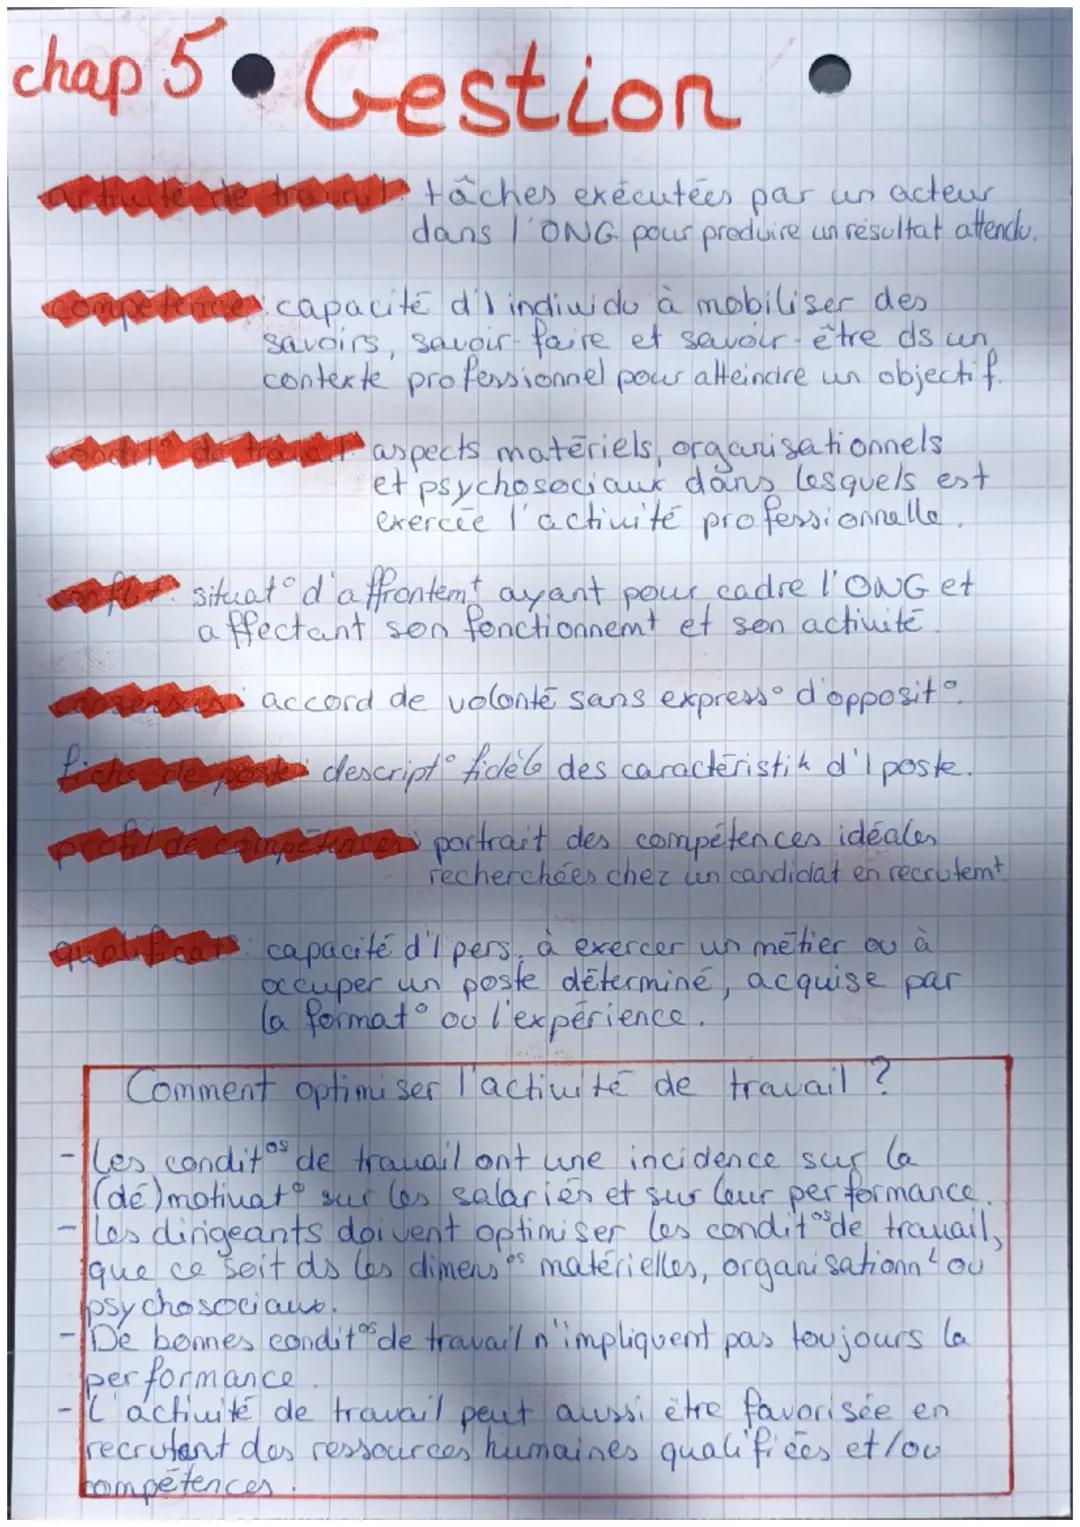 chap 5 Gestion
activité de travail: tâches exécutées par un acteur
dans l'ONG pour produire un résultat attendu.
compétence: capacité d'1 individu à mobiliser des
savoirs, savoir-faire et savoir-être ds un
contexte professionnel pour atteindre un objectif.
condit° de travail: aspects matériels, organisationnels
et psychosociaux dans lesquels est
exercée l'activité professionnelle.
conflit: situat° d'affrontemt ayant pour cadre l'ONG et
affectant son fonctionnemt et son activité.
consensus: accord de volonté sans express° d'opposit°.
fiche de poste: descript° fidèle des caractéristik d'1 poste.
profil de compétences: portrait des compétences idéales
recherchées chez un candidat en recrutemt.
qualificat°: capacité d'1 pers. à exercer un métier ou à
occuper un poste déterminé, acquise par
la format° ou l'expérience.
Comment optimiser l'activité de travail ?
- Les condit°s de travail ont une incidence sur la
(dé)motivat° sur les salariés et sur leur performance.
- Les dirigeants doivent optimiser les condit°s de travail,
que ce soit ds les dimens°s matérielles, organisationnl ou
psychosociaux.
- De bonnes condit°s de travail n'impliquent pas toujours la
performance.
- L'activité de travail peut aussi être favorisée en
recrutant des ressources humaines qualifiées et/ou
compétences.